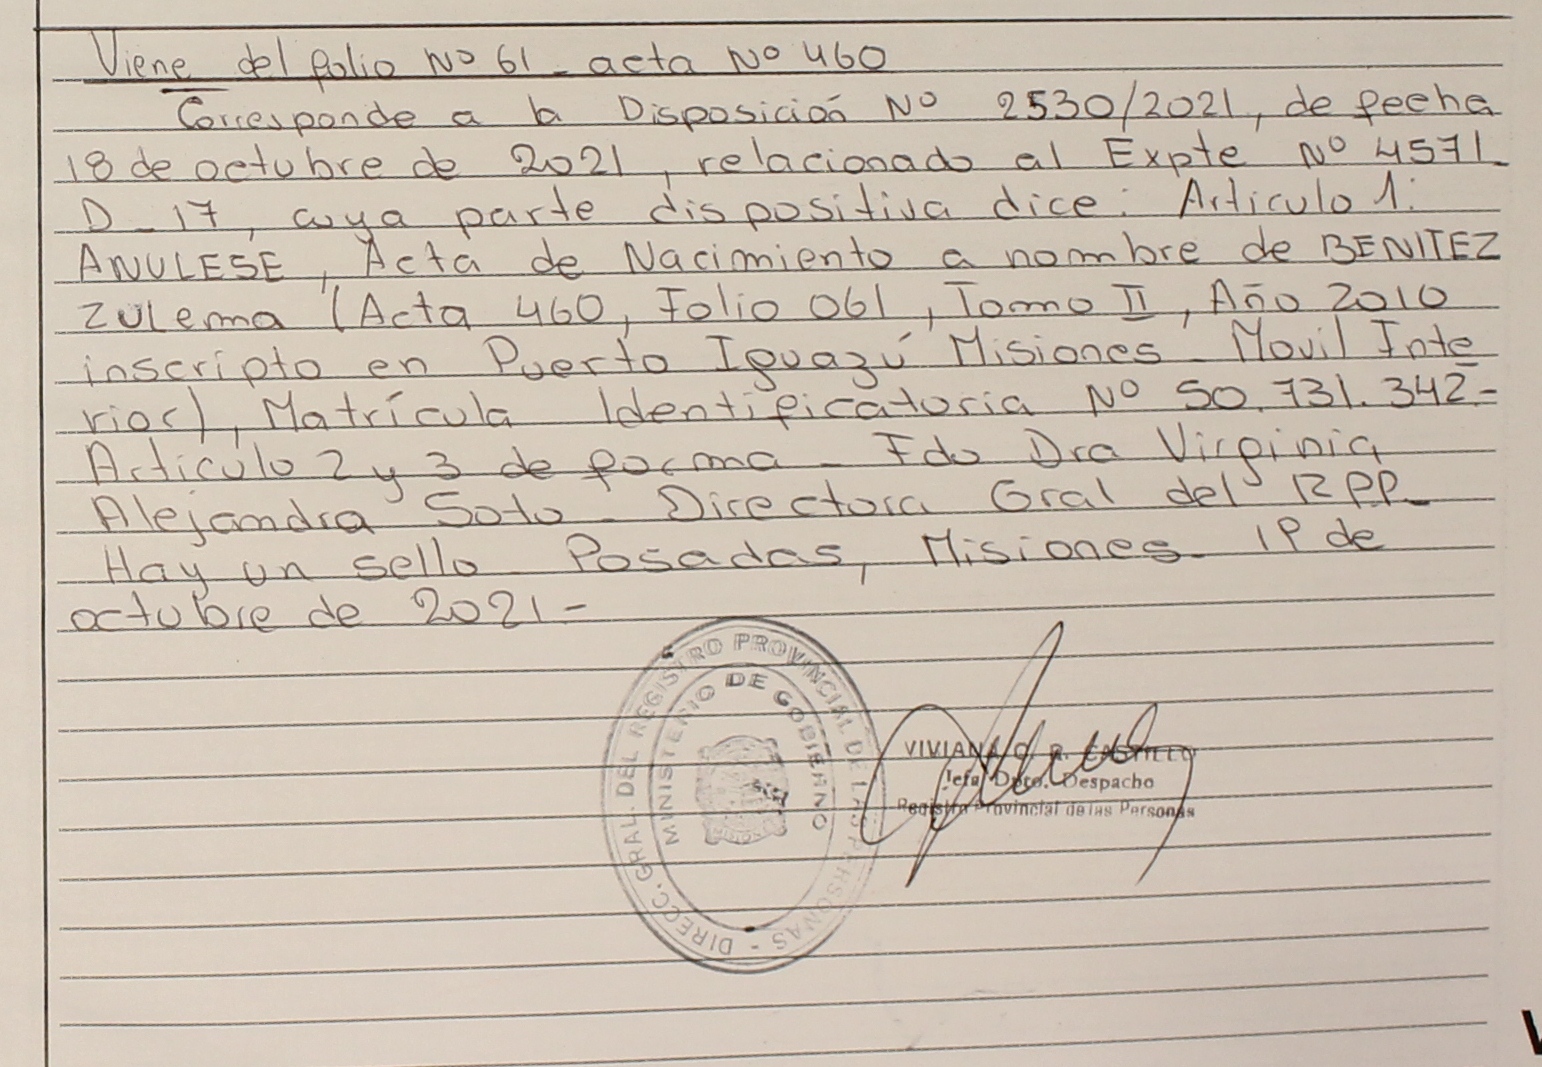 Viene del folio Nº 61 - acta Nº 460
Corresponde a la Disposición Nº 2530/2021, de fecha
18 de octubre de 2021, relacionado al Expte Nº 4571-
D-17, cuya parte dispositiva dice: Articulo 1:
ANULESE, Acta de Nacimiento a nombre de BENITEZ
ZULema (Acta 460, Folio 061, Tomo II, Año 2010
inscripto en Puerto Iguazú Misiones - Movil Inte
rior), Matrícula Identificatoria Nº 50.731.342-
Artículo 2 y 3 de forma - Fdo Dra Virginia
Alejandra Soto - Directora Gral del RPP-
Hay un sello - Posadas, Misiones - de
octubre de 2021-
DIRECC. GRAL. DEL REGISTRO PROVINCIAL DE LAS PERSONAS -
MINISTERIO DE GOBIERNO
VIVIANA C. R. CASTILLO
Jefa Dpto. Despacho
Registro Provincial de las Personas